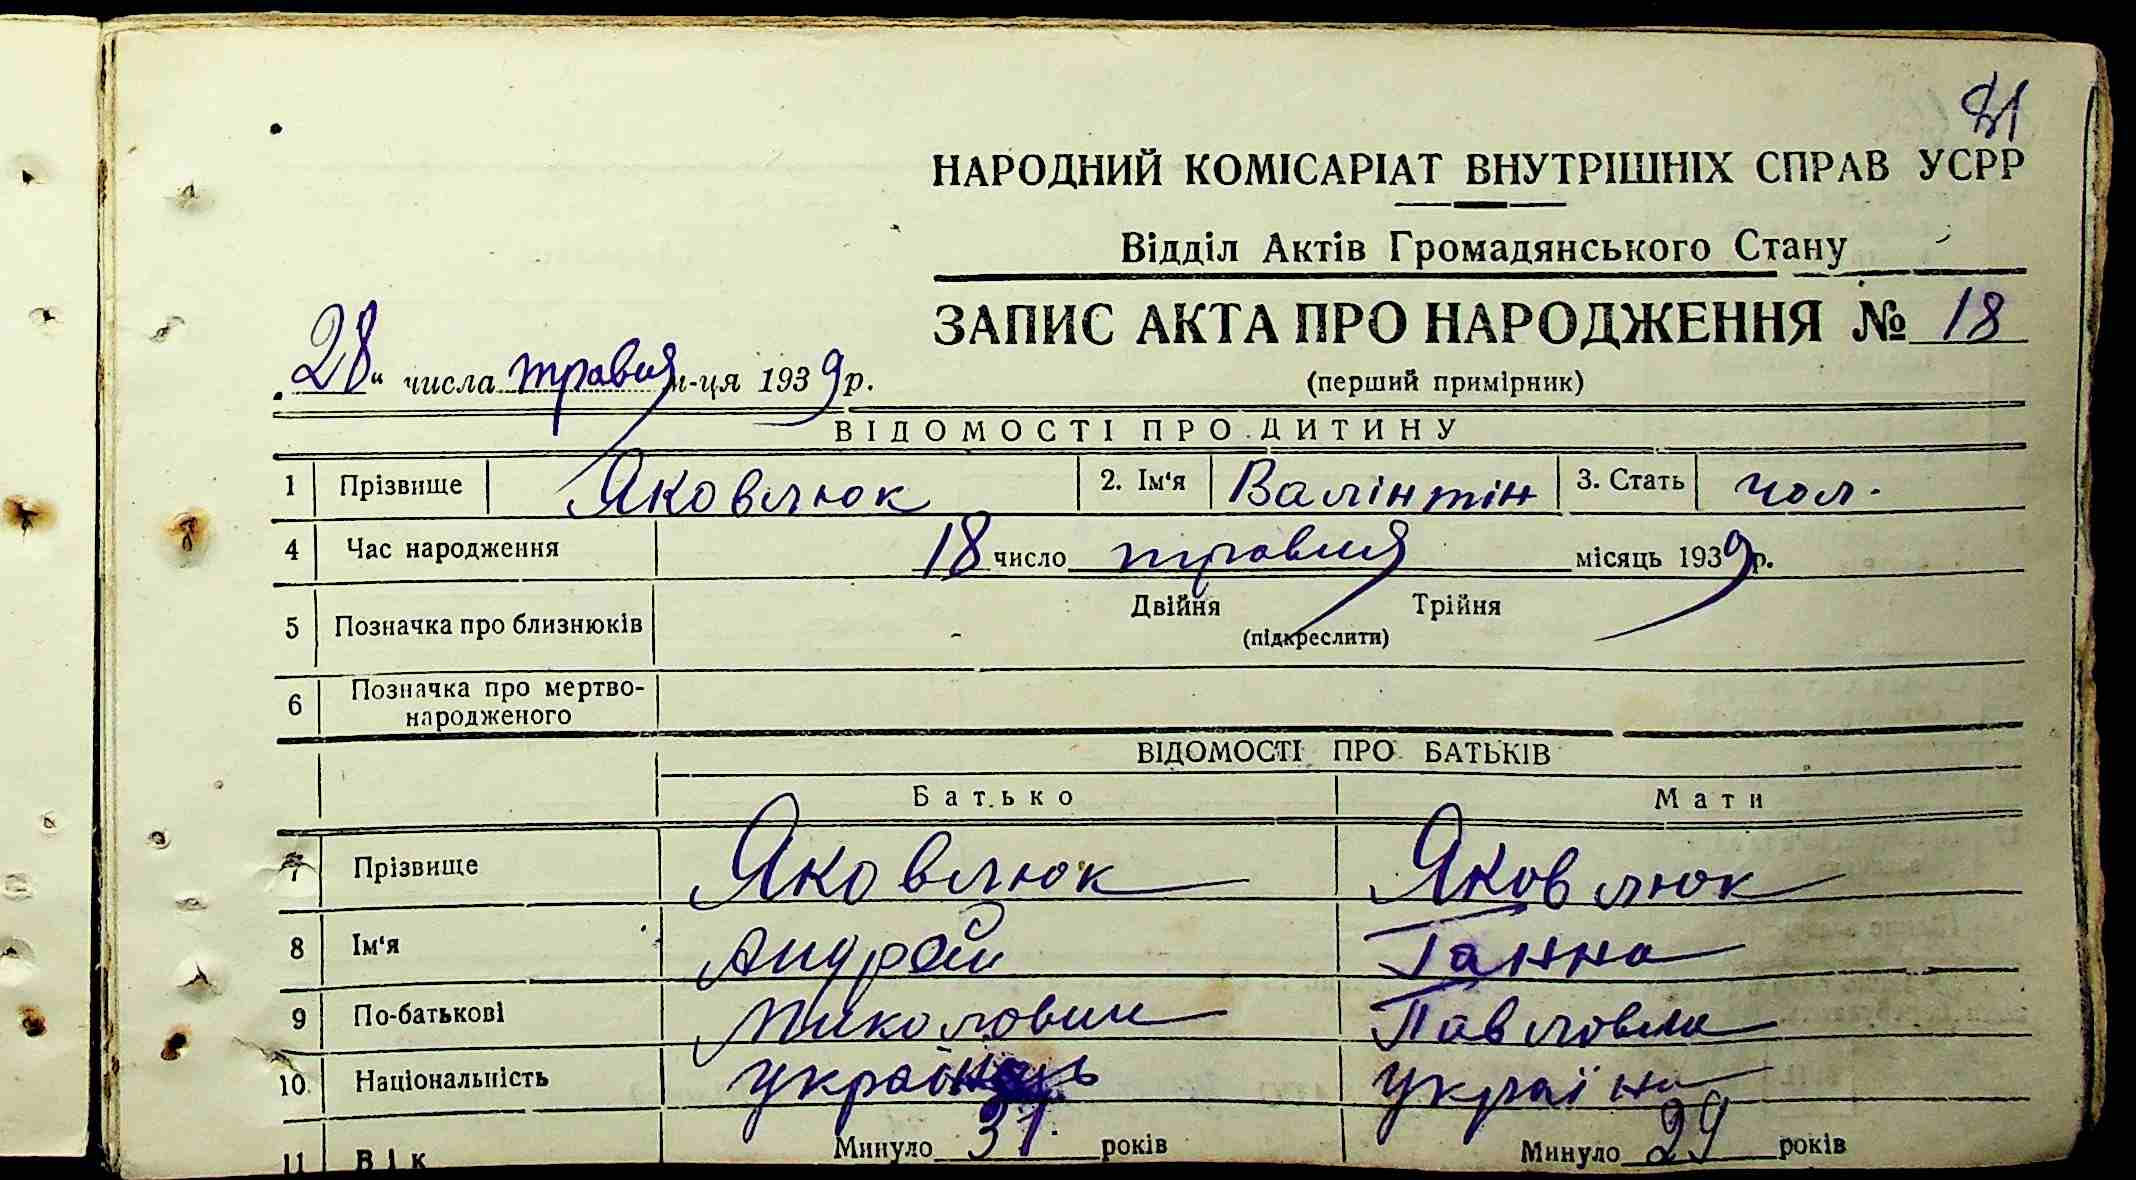 81
НАРОДНИЙ КОМІСАРІАТ ВНУТРІШНІХ СПРАВ УСРР
Відділ Актів Громадянського Стану
ЗАПИС АКТА ПРО НАРОДЖЕННЯ № 18
(перший примірник)
„28“ числа травня м-ця 1939 р.
ВІДОМОСТІ ПРО ДИТИНУ
1 Прізвище Яковлюк 2. Ім'я Валінтін 3. Стать чол.
4 Час народження 18 число травня місяць 1939 р.
5 Позначка про близнюків Двійня Трійня
(підкреслити)
6 Позначка про мертво-
народженого
ВІДОМОСТІ ПРО БАТЬКІВ
Батько Мати
7 Прізвище Яковлюк Яковлюк
8 Ім'я Андрій Ганна
9 По-батькові Миколович Павловна
10 Національність українець україн
11 Вік Минуло 31 років Минуло 29 років